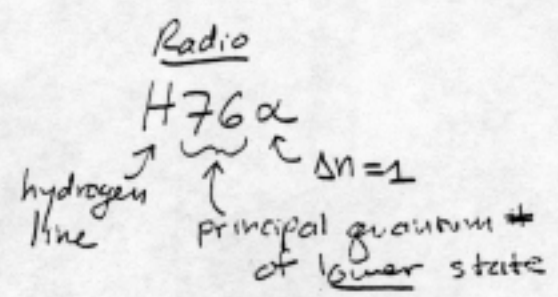 Radio
H76α
Δn=1
hydrogen
line
principal quantum #
of lower state